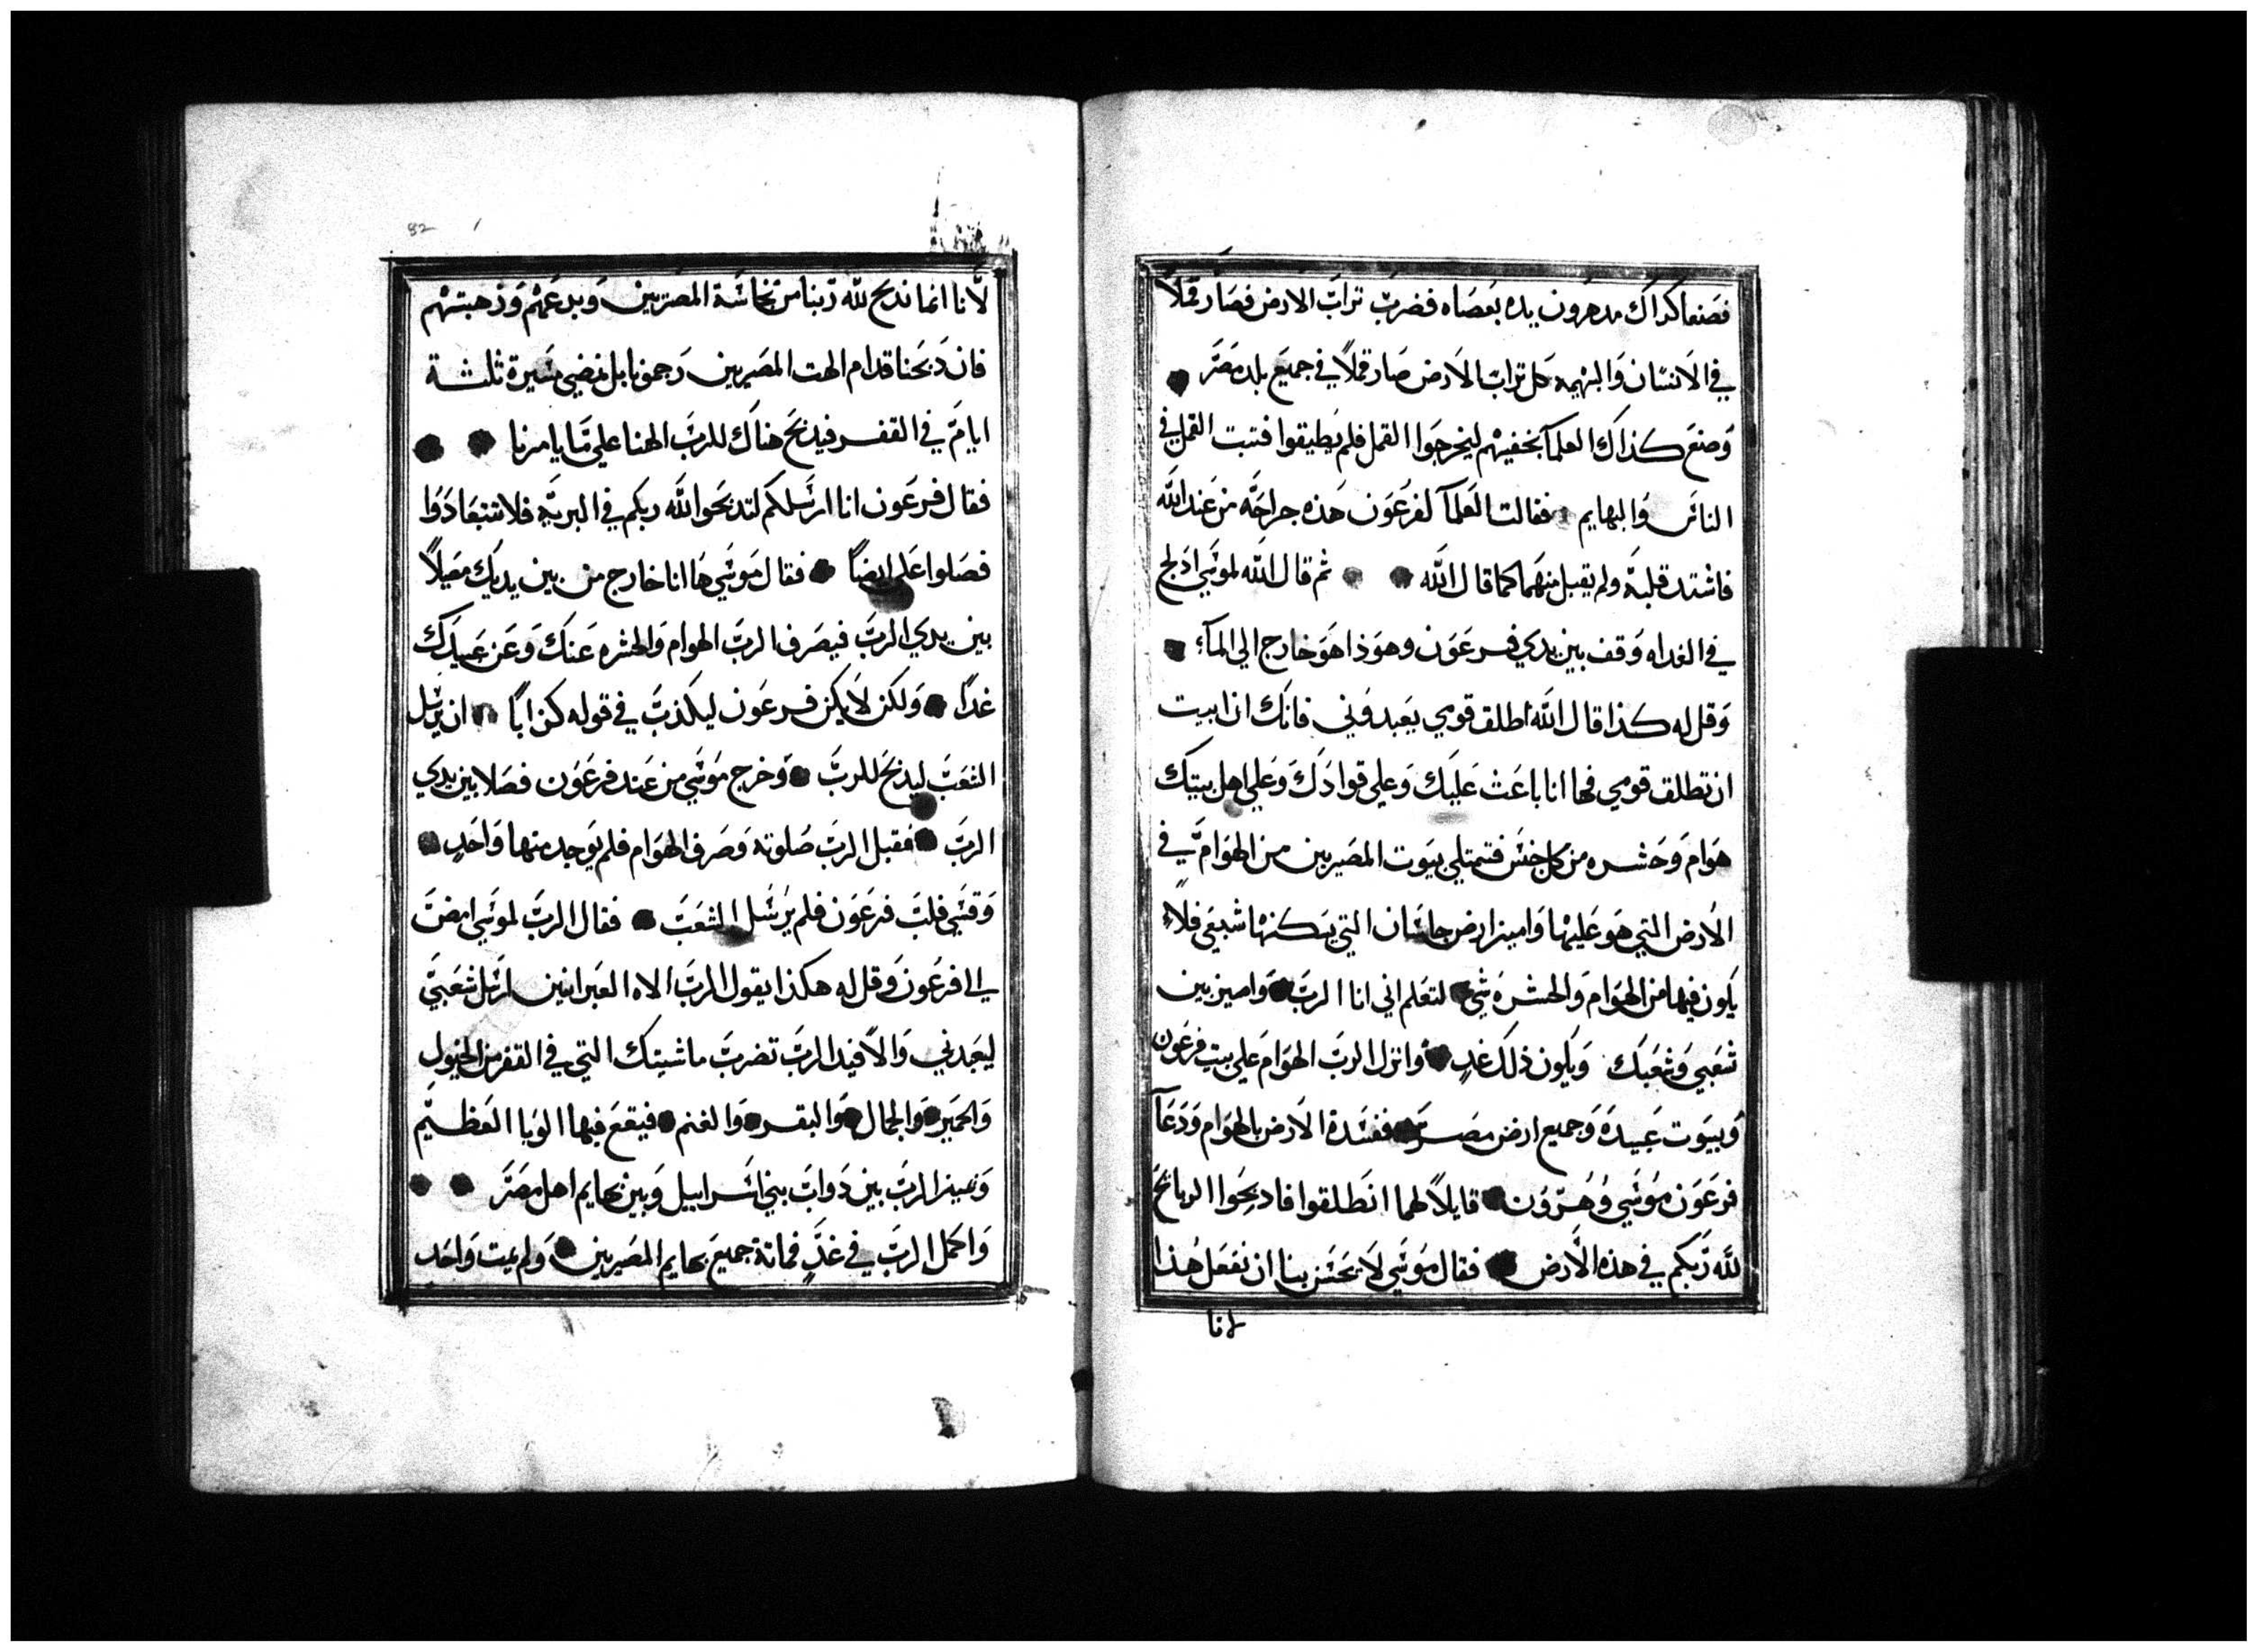 فصنعا كذاك مد هرون يده بعصاه فضرب تراب الارض فصار قملاً
في الانسان والبهيمه كل تراب الارض صار قملاً في جميع بلد مصر
وصنع كذاك العلمآ بخفيتهم ليخرجوا القمل فلم يطيقوا فتبت القمل في
الناس والبهايم فقالت العلمآ لفرعون هذه جراحه من عند الله
فاشتد قلبه ولم يقبل منهما كما قال الله ثم قال الله لموسي ادلج
في الغداه وقف بين يدي فرعون وهوذا هو خارج الي المآء
وقل له كذا قال الله اطلق قومي يعبدوني فانك ان ابيت
ان تطلق قومي فها انا باعث عليك وعلي قوادك وعلي اهل بيتك
هوام وحشره من كل جنس فتمتلي بيوت المصريين من الهوام في
الارض التي هو عليها واميز ارض جاسان التي يسكنها شبعي فلا
يكون فيها من الهوام والحشره شي لتعلم اني انا الرب واميز بين
شعبي وشعبك ويكون ذلك غدٍ وانزل الرب الهوام علي بيت فرعون
وبيوت عبيده وجميع ارض مصر ففسدة الارض بالهوام ودعآ
فرعون موسي وهرون قايلاً لهما انطلقوا فادبحوا الدبايح
لله ربكم في هذه الارض فقال موسي لا يحسن بنا ان نفعل هذا
لانا
لانا انما ندبح لله ربنا من نجاسة المصريين وبدعهم وذهبتهم
فان دبحنا قدام الهت المصريين رجمونا بل نمضي مسيرة ثلثة
ايام في القفر فيدبح هناك للرب الهنا علي ما يامرنا
فقال فرعون انا ارسلكم لتدبحوا لله ربكم في البرية فلا تتبعادوا
فصلوا علي ايضاً فقال موسي ها انا خارج من بين يديك مصلياً
بين يدي الرب فيصرف الرب الهوام والحشره عنك وعن عبيدك
غداً ولكن لا يكن فرعون ليكذب في قوله كذاباً ان يرسل
الشعب ليدبح للرب وخرج موسي من عند فرعون فصلا بين يدي
الرب فقبل الرب صلوته وصرف الهوام فلم يوجد منها واحدٍ
وقسي قلب فرعون فلم يرسل الشعب فقال الرب لموسي امض
الي فرعون وقل له هكذا يقول الرب الاه العبرانيين ارسل شعبي
ليعبدني والا فيد الرب تضرب ماشيتك التي في القفر من الخيول
والحمير والجمال والبقر والغنم فيقع فيها الوبا العظيم
وتميز الرب بين دواب بني اسرابيل وبين بهايم اهل مصر
واكمل الرب في غدٍ فماتة جميع بهايم المصريين ولم يمت واحد